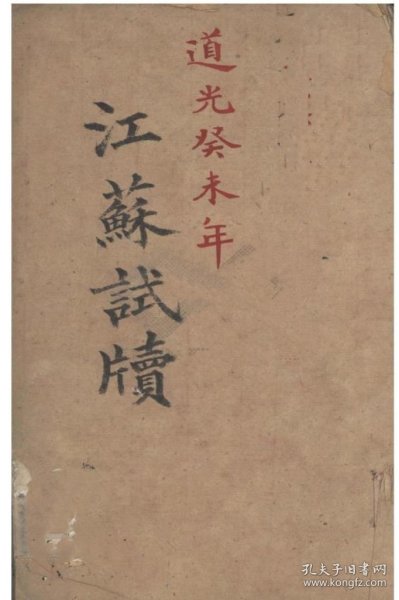 道光癸未年
江蘇試牘
孔夫子旧书网
www.kongfz.com